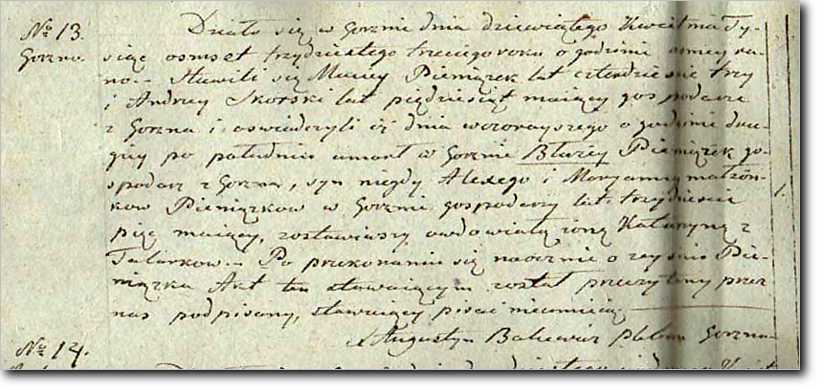 No 13.
Gorzno.
Działo się w Gorznie dnia dziewiątego Kwietnia Ty-
siąc osmset trzydziestego trzeciego roku o godzinie osmey ra-
no. Stawili się Maciey Pieniążek lat czterdzieście trzy
i Andrzey Skorski lat pięćdziesiąt maiący gospodarze
z Gorzna i oswiadczyli iż dnia wczorayszego o godzinie dru-
giey po południu umarł w Gorznie Błażey Pieniązek go-
spodarz z Gorzna, syn niegdy Alexego i Maryanny małżon-
kow Pieniązkow w Gorznie gospodarzy lat trzydzieście
pięć maiący, zostawiwszy owdowiałą żonę Katarzynę z
Talarkow. Po przekonaniu się naocznie o zeyściu Pie-
niązka Akt ten stawaiącym został przeczytany przez
nas podpisany, stawaiący pisać nieumieią
Augustyn Pleban Gorzna
No 14.
1.